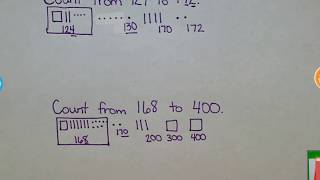 Count from 124 to 172.
124 130 170 172
Count from 168 to 400.
168 170 200 300 400